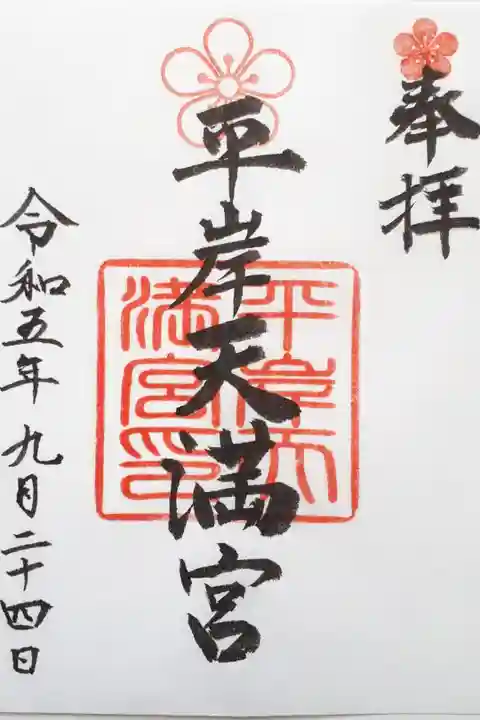 奉拝
平岸天満宮
平岸天
満宮印
令和五年九月二十四日